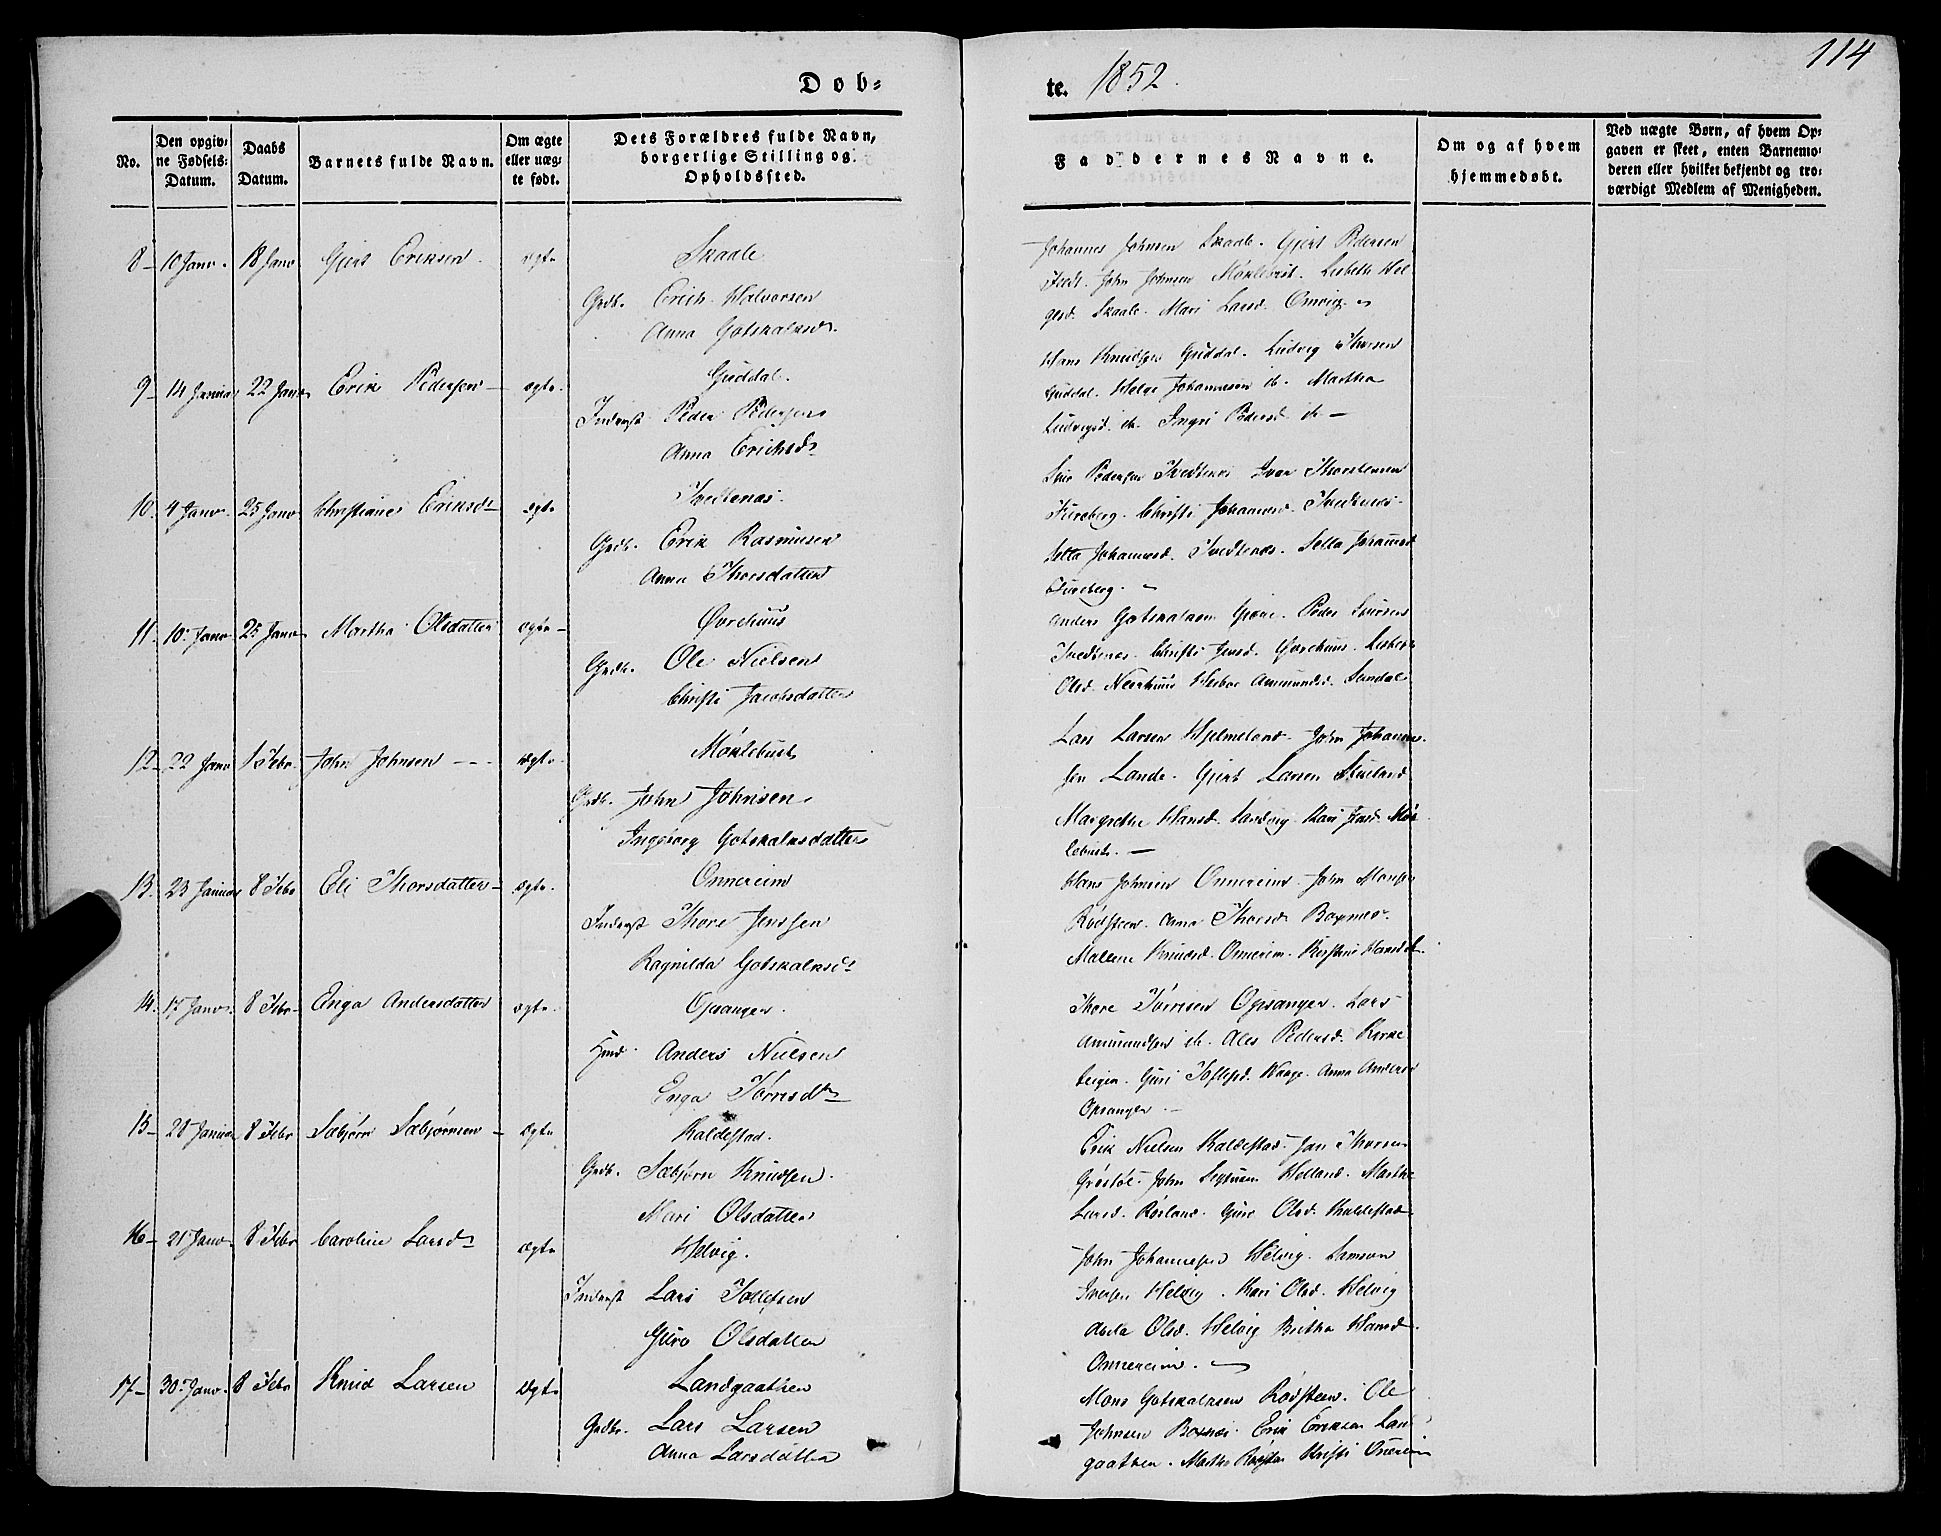 114
Døb- te. 1852.
No.
Den opgiv-
ne Fødsels-
Datum.
Daabs
Datum.
Barnets fulde Navn.
Om ægte
eller uæg-
te født.
Dets Forældres fulde Navn,
borgerlige Stilling og
Opholdssted.
Faddernes Navne.
Om og af hvem
hjemmedøbt.
Ved uægte Børn, af hvem Op-
gaven er skeet, enten Barnemo-
deren eller hvilket bekjendt og tro-
værdigt Medlem af Menigheden.
8 - 10 Janv. 18 Janv Gjert Eriksen ægte
Skaale
Grdb. Erich Halvorsen
Anna Gotskalksd.
Johannes Johnsen Skaale. Gjert Pedersen
Tvedt. John Johnsen Møklebust. Lisbeth Hel-
gesd. Skaale. Mari Larsd. Omvig
9 - 14 Januar 22 Janv Erik Pedersen - ægte.
Guddal.
Inderst Peder Pedersen
Anna Erichsdr
Hans Knudsen Guddal. Ludvig Thorsen
Guddal. Helge Johannesen ib. Martha
Ludvigsd. ib. Ingri Pedersd. ib -
10. 4 Janv. 25 Janv Christiane Eriksdr ægte
Tvedtenæs.
Grdb. Erik Rasmusen
Anna Thorsdatter
Siur Pedersen Tvedtenæs Iver Thorstensen
Fureberg. Christi Johannesd. Tvedtenæs.
Sella Johannesd. Tvedtenæs. Sella Johannesd
Fureberg.
11. 10. Janv 25 Janv Martha Olsdatter ægte -
Øvrehuus
Grdb. Ole Nielsen
Christi Jacobsdatter
Anders Gotskalksen Gjøre. Peder Siursen
Tvedtenæs. Christi Jensd. Øvrehuus. Lisbeth
Olsd. Neerhuus Herbor Ammundsd. Sundal
12 - 22 Janv 1 Febr. John Johnsen - - - ægte.
Møklebust
Grdb. John Johnsen
Ingeborg Gotskalksdatter
Lars Larsen Hjelmeland. John Johannes-
sen Lande. Gjert Larsen
Margrethe Hansd. Sandvig Kari Jensd. Møk
lebust. -
13. 23 Januar 8 Febr Eli Thorsdatter - ægte.
Onnereim
Inderst Thore Jenssen
Ragnilda Gotskalksdr
Hans Johnsen Onnereim. John Monsen
Rødsteen. Anna Thorsd. Boxnes.
Malene Knudsd. Onnereim. Kirstine Hansd ib.
14. 17 Janv. 8 Febr. Enga Andersdatter ægte.
Opsanger.
Hmd. Anders Nielsen
Enga Tørresdr
Thore Tørrisen Opsanger. Lars
Ammundsen ib. Ales Pedersd. Kirke
teigen. Guri Toflesd. Waage. Anna Andersd
Opsanger. -
15 - 28 Januar 8 Febr Sæbjørn Sæbjørnsen - ægte
Kaldestad.
Grdb. Sæbjørn Knudsen.
Mari Olsdatter
Erik Nielsen Kaldestad. Jan Thorsen
John Helland. Martha
Larsd. Røsland. Guro Olsd. Kaldestad
16 - 21 Janv. 8 Febr Caroline Larsdr ægte
Helvig.
Inderst Lars Tollefsen
Guro Olsdatter
John Johannesen Helvig. Samson
Iversen Helvig. Kari Olsd. Helvig
Olsd. Helvig Britha Hansd.
Onnereim.
17 - 30 Janv. 8 Febr Knud Larsen ægte
Landgaathen
Grdb. Lars Larsen
Anna Larsdatter
Mons Gotskalksen Rødsteen. Ole
Johnsen Boxnes. Erik Eriksen Lan
gaathen. Martha Kristi Onnereim